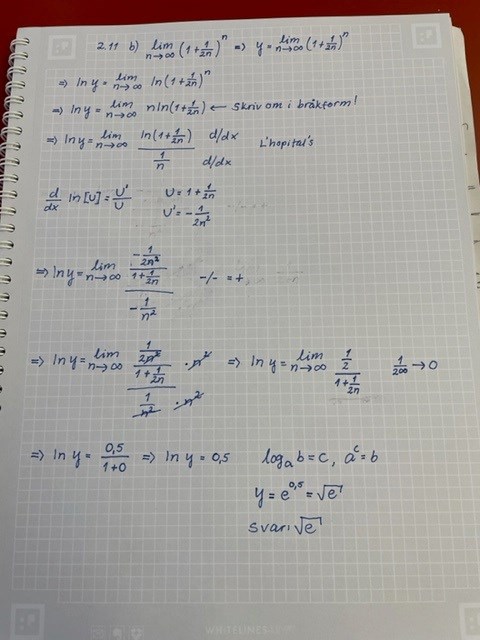 2.11 b) lim n→∞ (1+1/2n)^n => y = lim n→∞ (1+1/2n)^n
=> ln y = lim n→∞ ln(1+1/2n)^n
=> ln y = lim n→∞ n ln(1+1/2n) ← Skriv om i bråkform!
=> ln y = lim n→∞ ln(1+1/2n) / (1/n) d/dx d/dx L'hopital's
d/dx ln[u] = u'/u u = 1+1/2n
u' = -1/2n²
=> ln y = lim n→∞ ((-1/2n²)/(1+1/2n)) / (-1/n²) -/- = +
=> ln y = lim n→∞ ((1/2n²)/(1+1/2n)) / (1/n²) · n² · n² => ln y = lim n→∞ (1/2)/(1+1/2n) 1/2∞ → 0
=> ln y = 0,5/(1+0) => ln y = 0,5 log_a b = c, a^c = b
y = e^0,5 = √e
svar: √e
WHITELINES